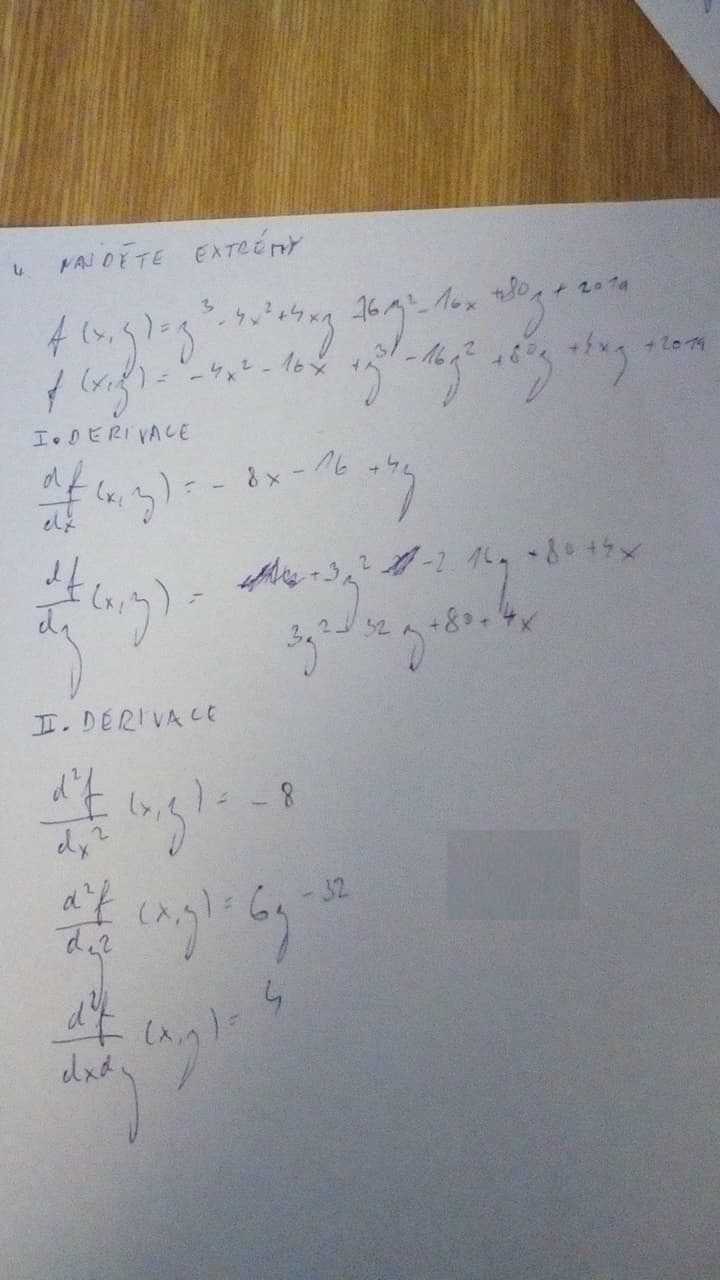 4. NAJDĚTE EXTRÉMY
f(x,y) = y³ - 4x² + 4xy - 16y² - 16x + 80y + 2019
f(x,y) = -4x² - 16x + y³ - 16y² + 80y + 4xy + 2019
I. DERIVACE
df/dx (x,y) = - 8x - 16 + 4y
df/dy (x,y) = + 3y² - 2 · 16y + 80 + 4x
3y² - 32y + 80 + 4x
II. DERIVACE
d²f/dx² (x,y) = - 8
d²f/dy² (x,y) = 6y - 32
d²f/dxdy (x,y) = 4